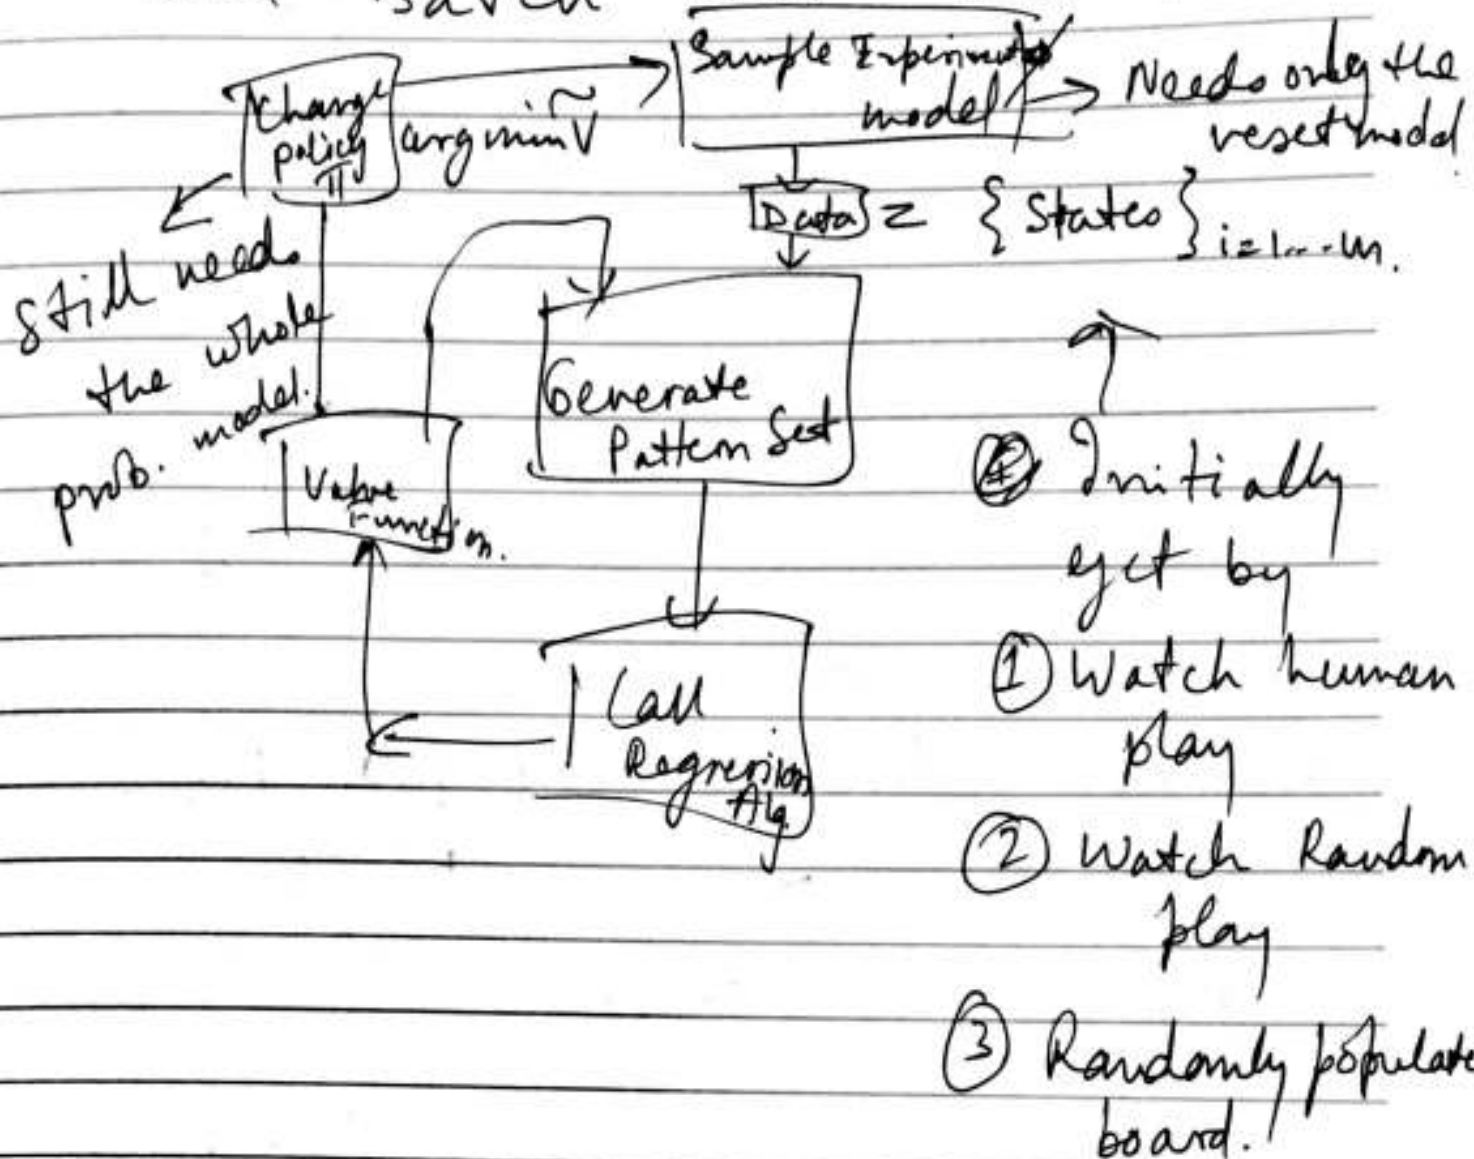 Change
policy
π
argmin Ṽ
Sample Experiments
model
Needs only the
reset model
Data = { States } i=1...m.
Still need
the whole
prob. model.
Generate
Pattern Set
Value
Function.
Call
Regression
Alg.
Initially
get by
① Watch human
play
② Watch Random
play
③ Randomly populate
board.